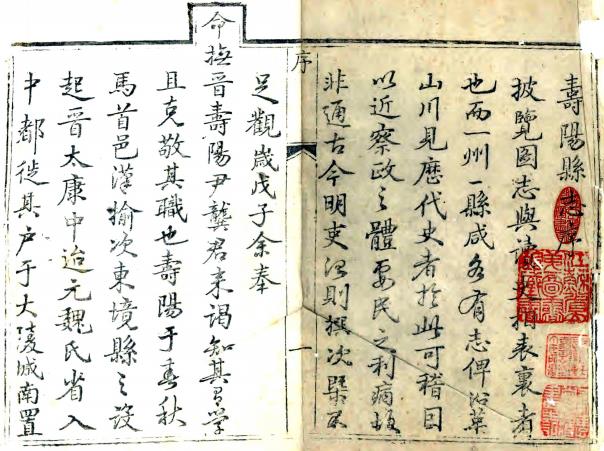 壽陽縣志序
披覽圖志與讀史相表裏者
也而一州一縣咸各有志俾沿革
山川見歷代史者於此可稽因
以近察政之體要民之利病故
非通古今明吏治則撰次槩不
序
一
足觀歲戊子余奉
命撫晉壽陽尹龔君来謁知其學
且克敬其職也壽陽于春秋
馬首邑漢榆次東境縣之設
起晉太康中迨元魏氏省入
中都徙其户于大陵城南置